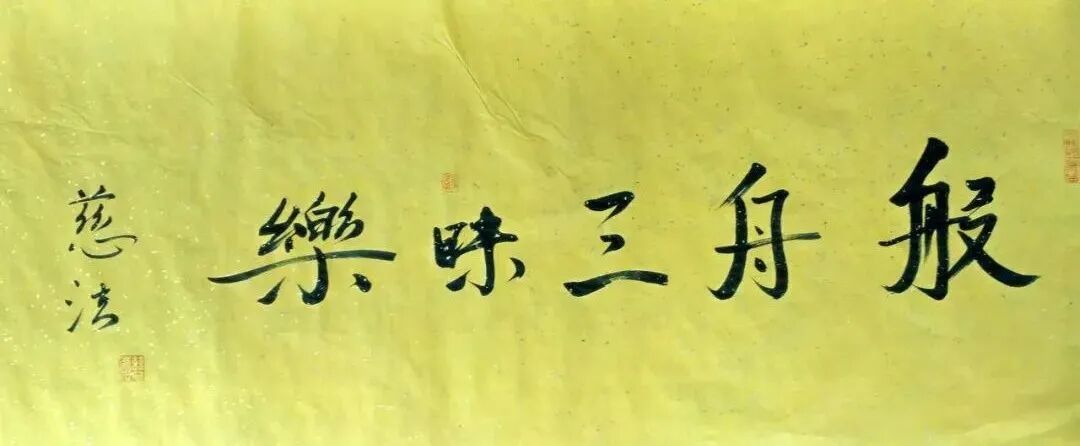 般舟三昧樂
慈法